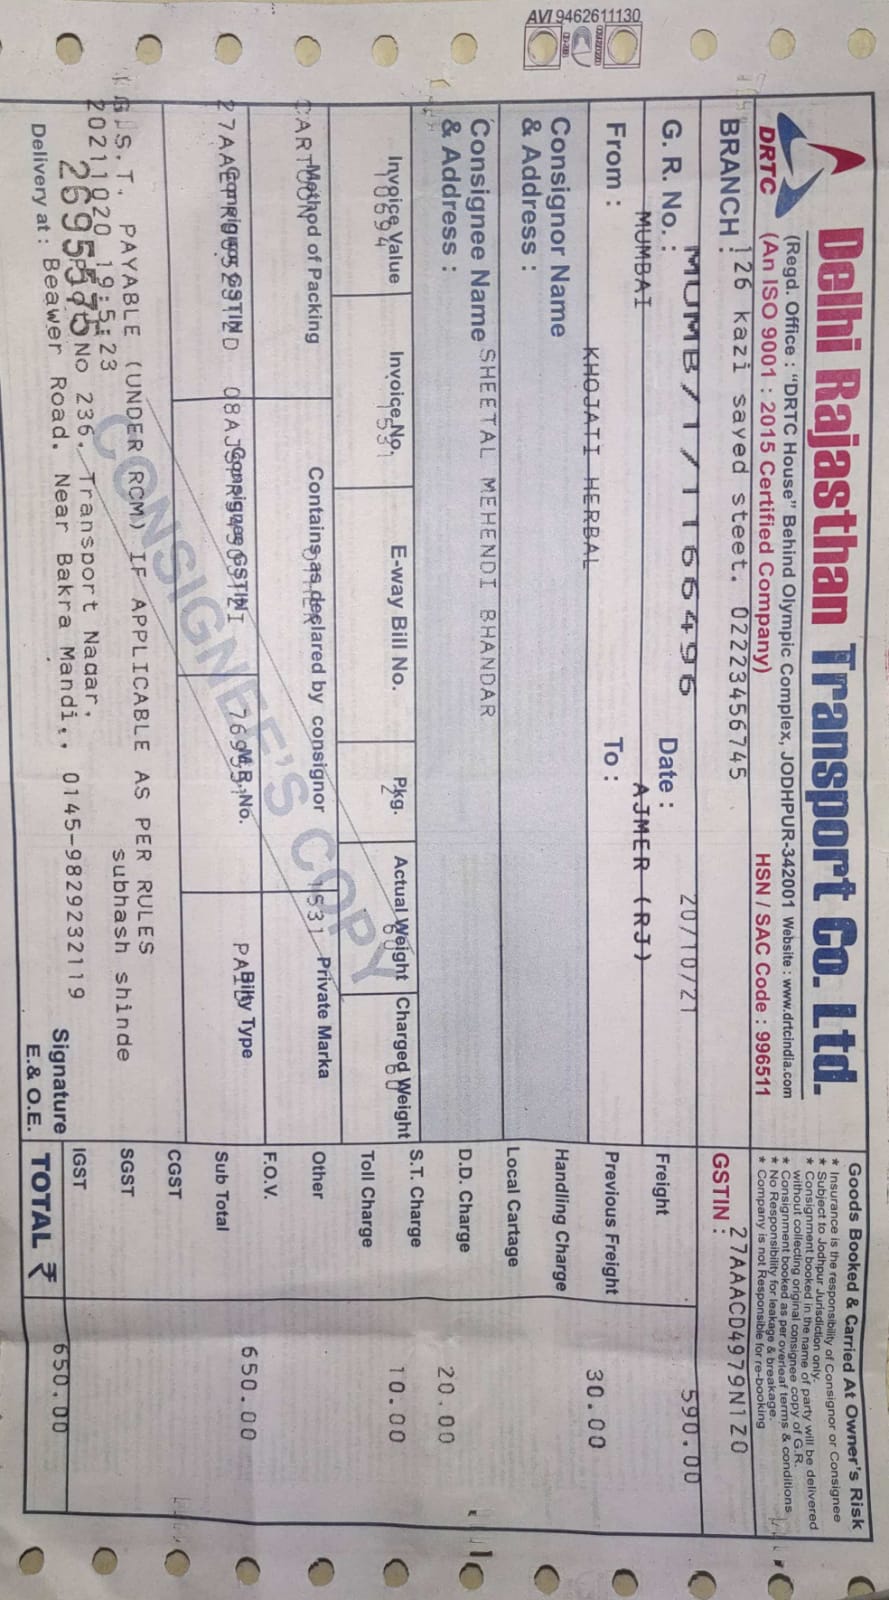 AVI 9462611130
DRTC
Delhi Rajasthan Transport Co. Ltd.
(Regd. Office : "DRTC House" Behind Olympic Complex, JODHPUR-342001 Website : www.drtcindia.com
(An ISO 9001 : 2015 Certified Company)
HSN / SAC Code : 996511
Goods Booked & Carried At Owner's Risk
* Insurance is the responsibility of Consignor or Consignee
* Subject to Jodhpur Jurisdiction only.
* Consignment booked in the name of party will be delivered
without collecting original consignee copy of G.R.
* Consignment booked as per overleaf terms & conditions
* No Responsibility for leakage & breakage.
* Company is not Responsible for re-booking
BRANCH : 126 kazi sayed steet. 02223456745
GSTIN : 27AAACD4979N1Z0
G. R. No. : MUMB/17/1166496
Date : 20/10/21
From : MUMBAI
To : AJMER (RJ)
Consignor Name
& Address :
KHOJATI HERBAL
Consignee Name
& Address :
SHEETAL MEHENDI BHANDAR
Invoice Value
10694
Invoice No.
1531
E-way Bill No.
Pkg.
2
Actual Weight
60
Charged Weight
60
Method of Packing
CARTOON
Contains as declared by consignor
OTHER
Private Marka
1531
Consignor GSTIN
Consignee GSTIN
M.R. No.
Bilty Type
PAID
CONSIGNEE'S COPY
G.S.T. PAYABLE (UNDER RCM) IF APPLICABLE AS PER RULES
20211020 19:5:23
subhash shinde
No 236. Transport Nagar.
Delivery at : Beawer Road. Near Bakra Mandi.. 0145-9829232119
Signature
E.& O.E.
Freight 590.00
Previous Freight 30.00
Handling Charge
Local Cartage
D.D. Charge 20.00
S.T. Charge 10.00
Toll Charge
Other
F.O.V.
Sub Total 650.00
CGST
SGST
IGST
TOTAL ₹ 650.00